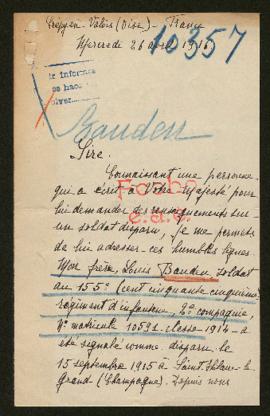 Crépy en Valois (Oise) - France
Mercredi 26 avril 1916
10357
Bauden
Sire.
Connaissant une personne
qui a écrit à Votre Majesté pour
lui demander des renseignements sur
un soldat disparu, je me permets
de lui adresser ces humbles lignes.
Mon frère, Louis Bauden soldat
au 155e (cent cinquante cinquième)
régiment d'infanterie, 2e compagnie,
N° matricule 10592 classe 1914 a
été signalé comme disparu le
15 septembre 1915 à Saint Hilaire le
grand (Champagne). Depuis nous